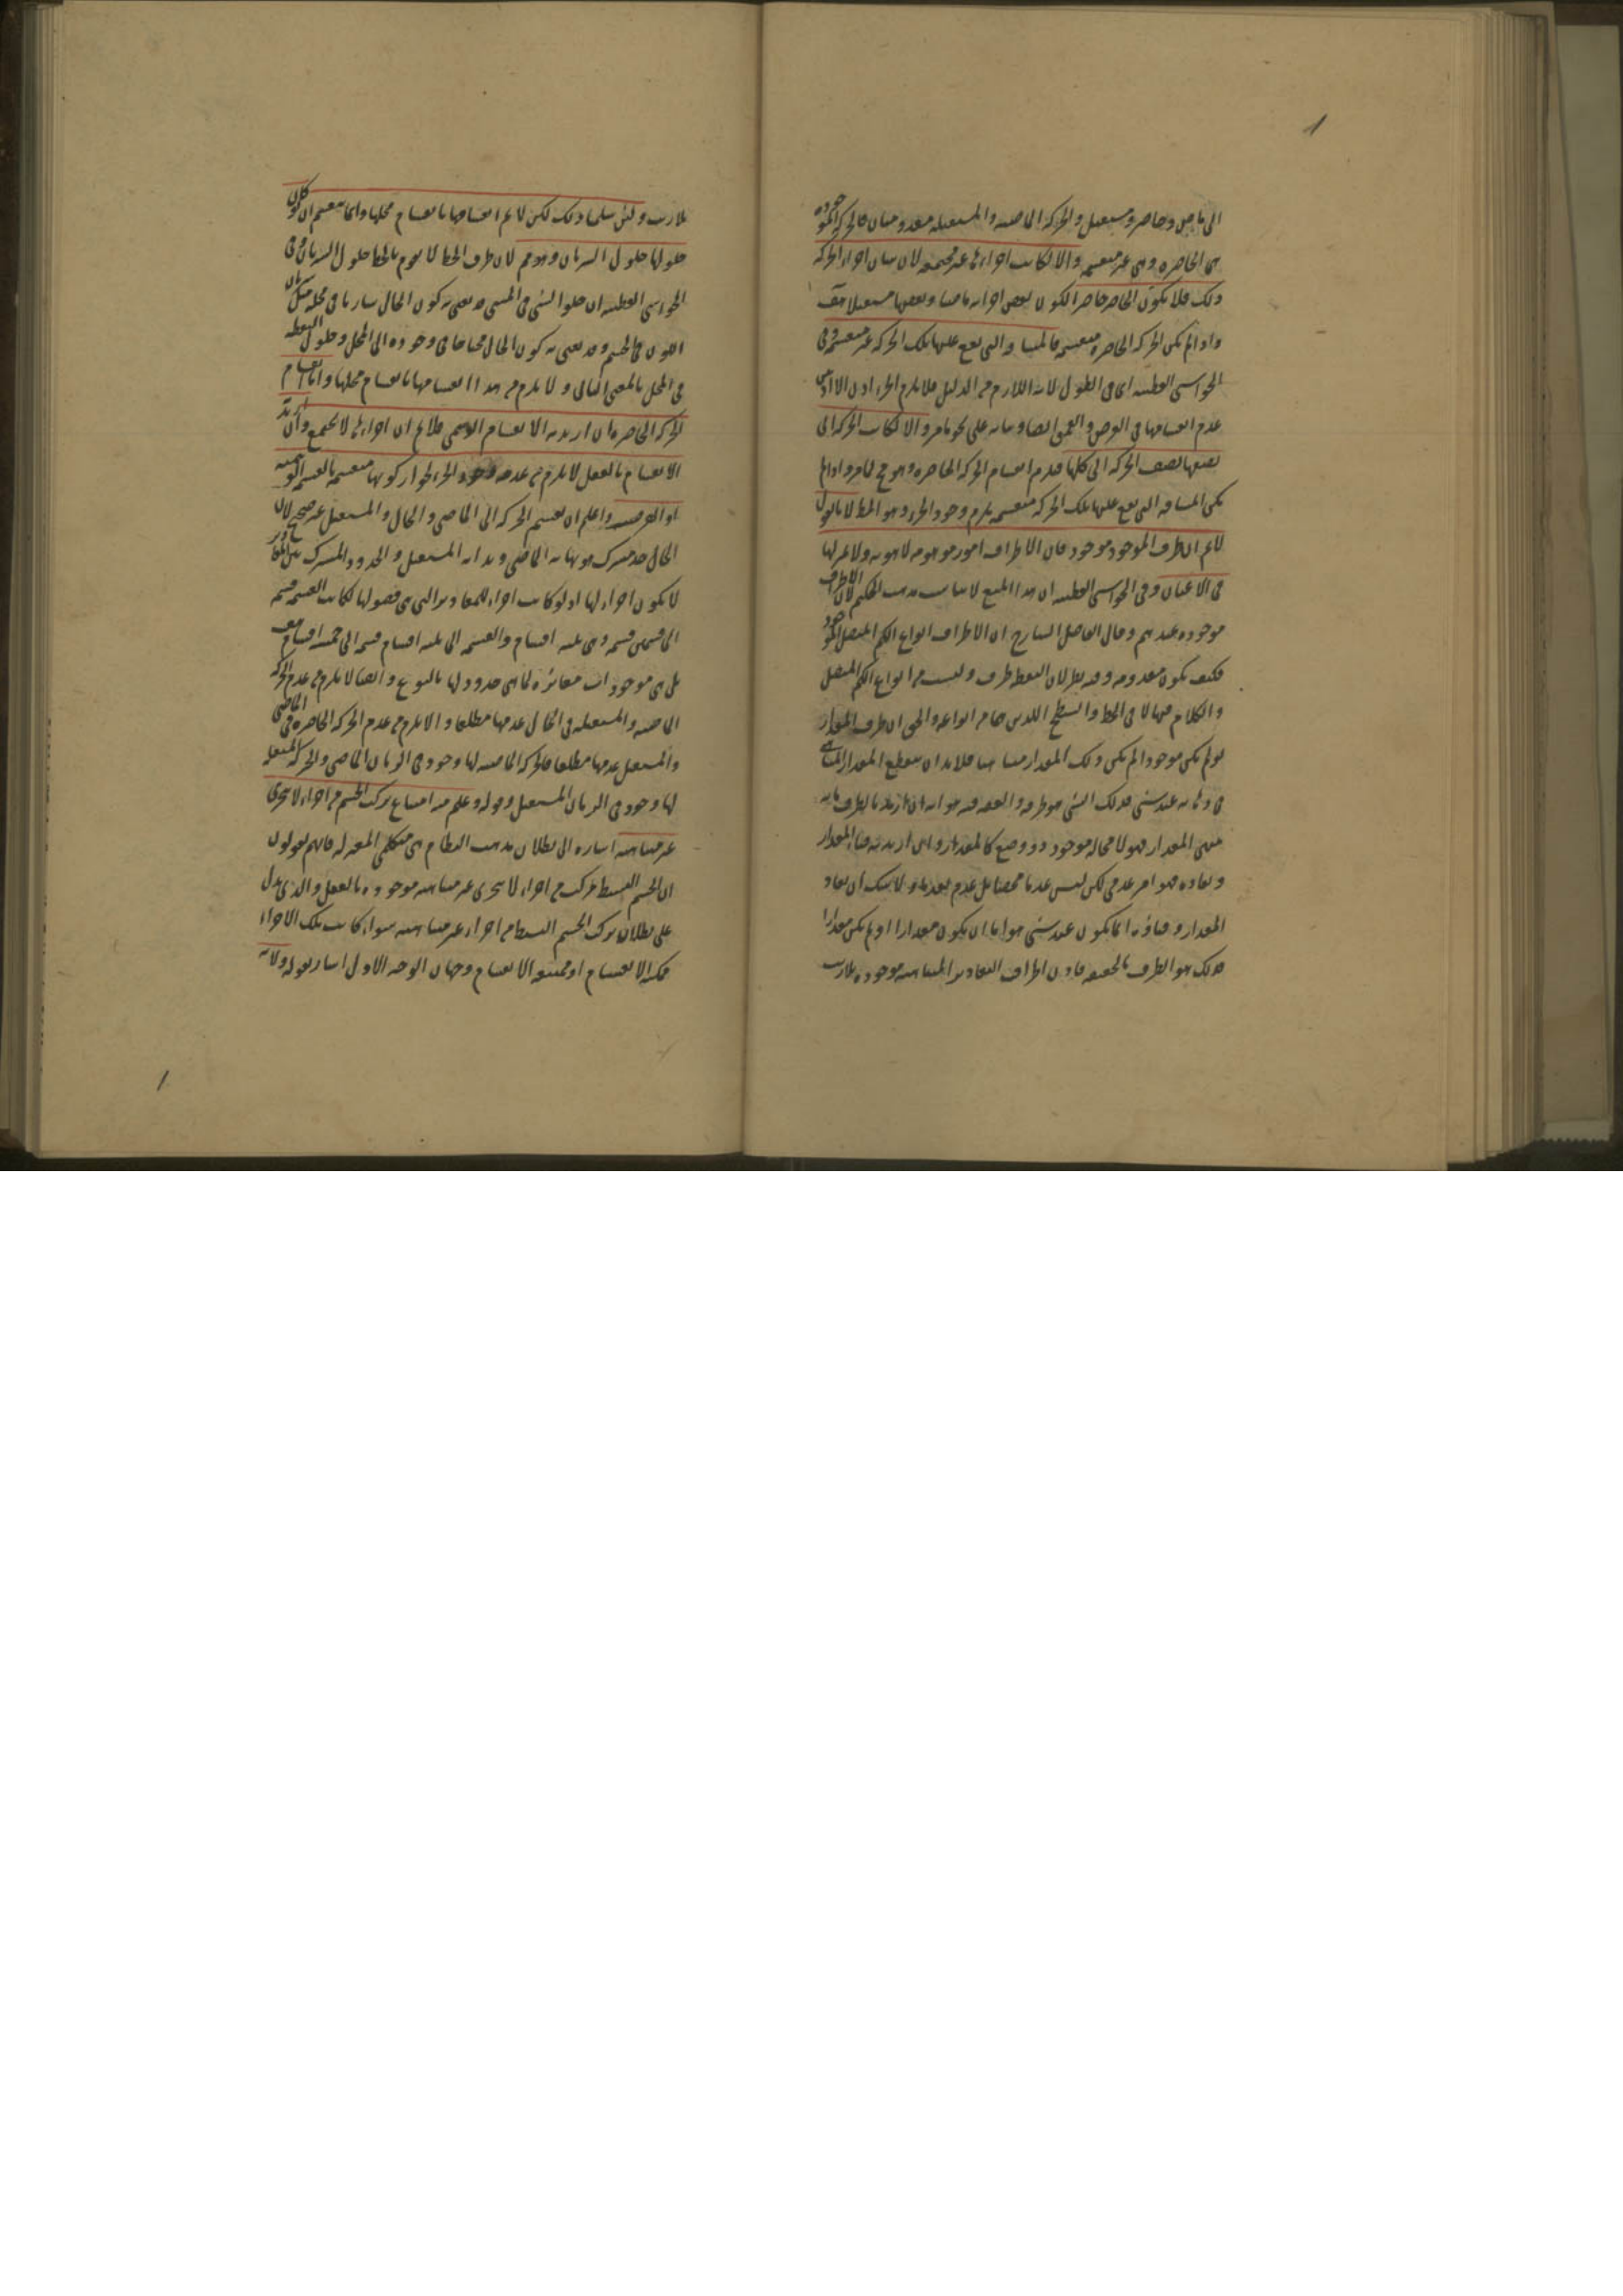 الى ماض وحاضر ومستقبل والحركة الماضية والمستقبلة معدومتان فالحركة الموجودة
هى الحاضرة وهى غير منقسمة والا لكانت اجزاءها غير مجتمعة لان شان اجزاء الحركة
ذلك فلا يكون الحاضر حاضرا لكون بعض اجزائه ماضيا وبعضها مستقبلا هف
واذا لم تكن الحركة الحاضرة منقسمة فالمسافة التى تقع عليها تلك الحركة غير منقسمة وفى
الحواشى القطبية اى فى الطول لانه اللازم من الدليل فلا يلزم الجزء اذن الا اذا بين
عدم انقسامها فى العرض والعمق ايضا وبيانه على نحو ما مر والا لكانت الحركة الى
نصفها نصف الحركة الى كلها فيلزم انقسام الحركة الحاضرة وهو مح لما مر واذا لم
تكن المسافة التى تقع عليها تلك الحركة منقسمة يلزم وجود الجزء وهو المط لا يقال
لانم ان طرف الموجود موجود فان الاطراف امور موهومة لا هوية ولا عز لها
فى الاعيان وفى الحواشى القطبية ان هذا المنع لا يناسب مذهب الحكيم لان الاطراف
موجودة عندهم وقال الفاضل الشارح ان الاطراف انواع الكم المتصل الموجود
فكيف تكون معدومة وفيه نظر لان النقطة طرف وليست من انواع الكم المتصل
والكلام فيها لا فى الخط والسطح اللذين هما من انواعه والحق ان طرف المقدار
لو لم يكن موجودا لم يكن ذلك المقدار متناهيا فلا بد ان ينقطع المقدار المتناهى
فى ذهابه عند شئ فذلك الشئ هو طرفه والفقه فيه هو انه ان اريد بالطرف ما به
ينتهى المقدار فهو لا محالة موجود ذو وضع كالمقدار وان اريد به فناء المقدار
ونفاده فهو امر عدمى لكن ليس عدما محضا بل عدم بعد ما ولا شك ان نفاد
المقدار وفناؤه انما يكون عند شئ هو اما ان يكون مقدارا او لم يكن مقدارا
فذلك هو الطرف بالحقيقة فاذن اطراف المقادير المتناهية موجودة بلا ريب
بلا ريب ولئن سلمنا ذلك لكن لانم انقسامها بانقسام محلها وانما ينقسم ان لو كان
حلولها حلول السريان وهو مم لان طرف الخط لا يقوم بالخط حلول السريان وفى
الحواشى القطبية ان حلول الشئ فى الشئ قد يعنى به كون الحال ساريا فى محله مثل سريان
اللون فى الجسم وقد يعنى به كون الحال محتاجا فى وجوده الى المحل وحلول النقطة
فى المحل بالمعنى الثانى ولا يلزم من هذا انقسامها بانقسام محلها واما انقسام
الحركة الحاضرة فان اريد به الانقسام الوهمى فلانم ان اجزاءها لا تجتمع وان اريد
الانقسام بالفعل لا يلزم من عدمه وجود الجزء لجواز كونها منقسمة بالقسمة الوهمية
او الفرضية واعلم ان تقسيم الحركة الى الماضى والحال والمستقبل غير صحيح لان
الحال حد مشترك هو نهاية الماضى وبداية المستقبل والحدود المشتركة بين المقادير
لا يكون اجزاء لها اذ لو كانت اجزاء للمقادير التى هى فصولها لكانت القسمة قسمة
الى قسمين قسمة وهى ثلثة اقسام والقسمة الى ثلثة اقسام قسمة الى خمسة اقسام هف
بل هى موجودات مغائرة لما هى حدود لها بالنوع وايضا لا يلزم من عدم الحركة
الماضية والمستقبلة فى الحال عدمها مطلقا والا يلزم من عدم الحركة الحاضرة فى الماضى
والمستقبل عدمها مطلقا فالحركة الماضية لها وجود فى الزمان الماضى والحركة المستقبلة
لها وجود فى الزمان المستقبل وقوله وعلم منه امتناع تركب الجسم من اجزاء لا تتجزى
غير متناهية اشارة الى بطلان مذهب النظام من متكلمى المعتزلة فانهم يقولون
ان الجسم البسيط مركب من اجزاء لا تتجزى غير متناهية موجودة بالفعل والذى يدل
على بطلان تركب الجسم البسيط من اجزاء غير متناهية سواء كانت تلك الاجزاء
ممكنة الانقسام او ممتنعة الانقسام وجهان الوجه الاول اشار بقوله ولانه